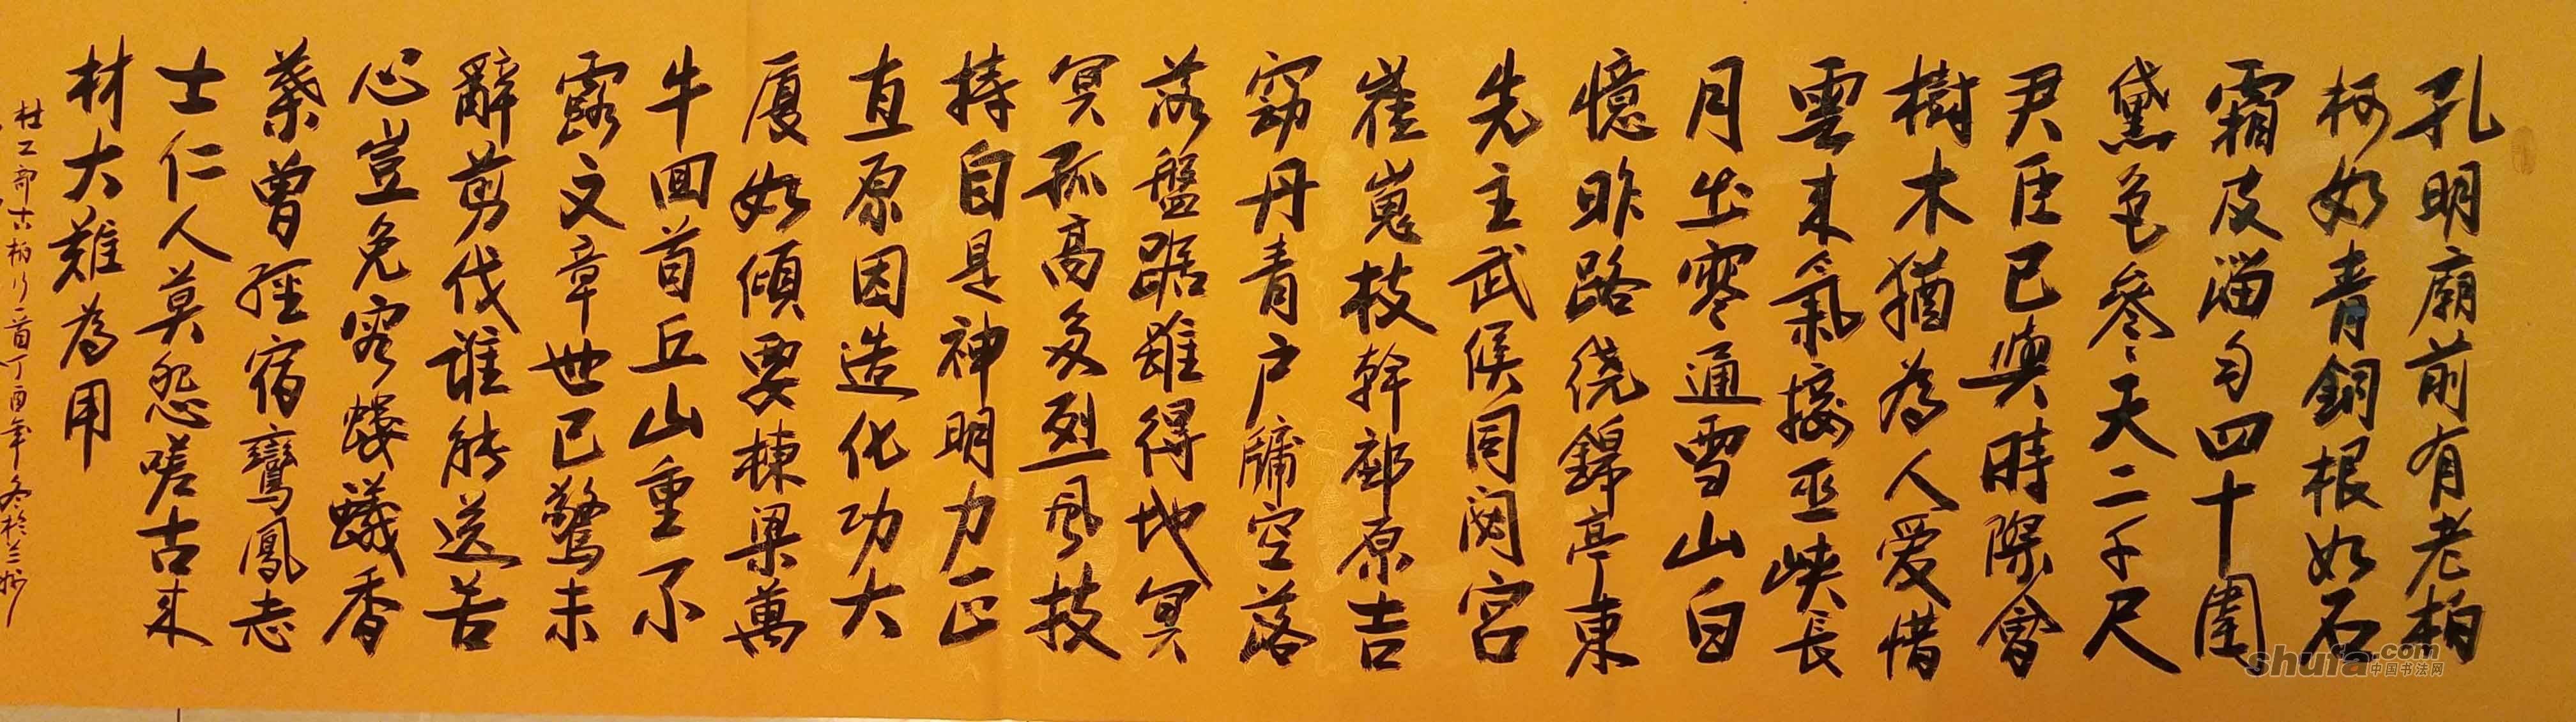 孔明廟前有老柏
柯如青銅根如石
霜皮溜匀四十圍
黛色參天二千尺
君臣已與時際會
樹木猶為人愛惜
雲来氣接巫峽長
月出寒通雪山白
憶昨路绕錦亭東
先主武侯同閟宮
崔嵬枝幹郊原古
窈丹青户牖空落
落盤踞雖得地冥
冥孤高多烈風技
持自是神明力正
直原因造化功大
厦如傾要棟梁萬
牛回首丘山重不
露文章世已驚未
辭剪伐誰能送苦
心豈免容螻蟻香
葉曾經宿鸞鳳志
士仁人莫怨嗟古来
材大難為用
杜工部古柏行一首丁酉年冬於兰州
shufa.com
中国书法网